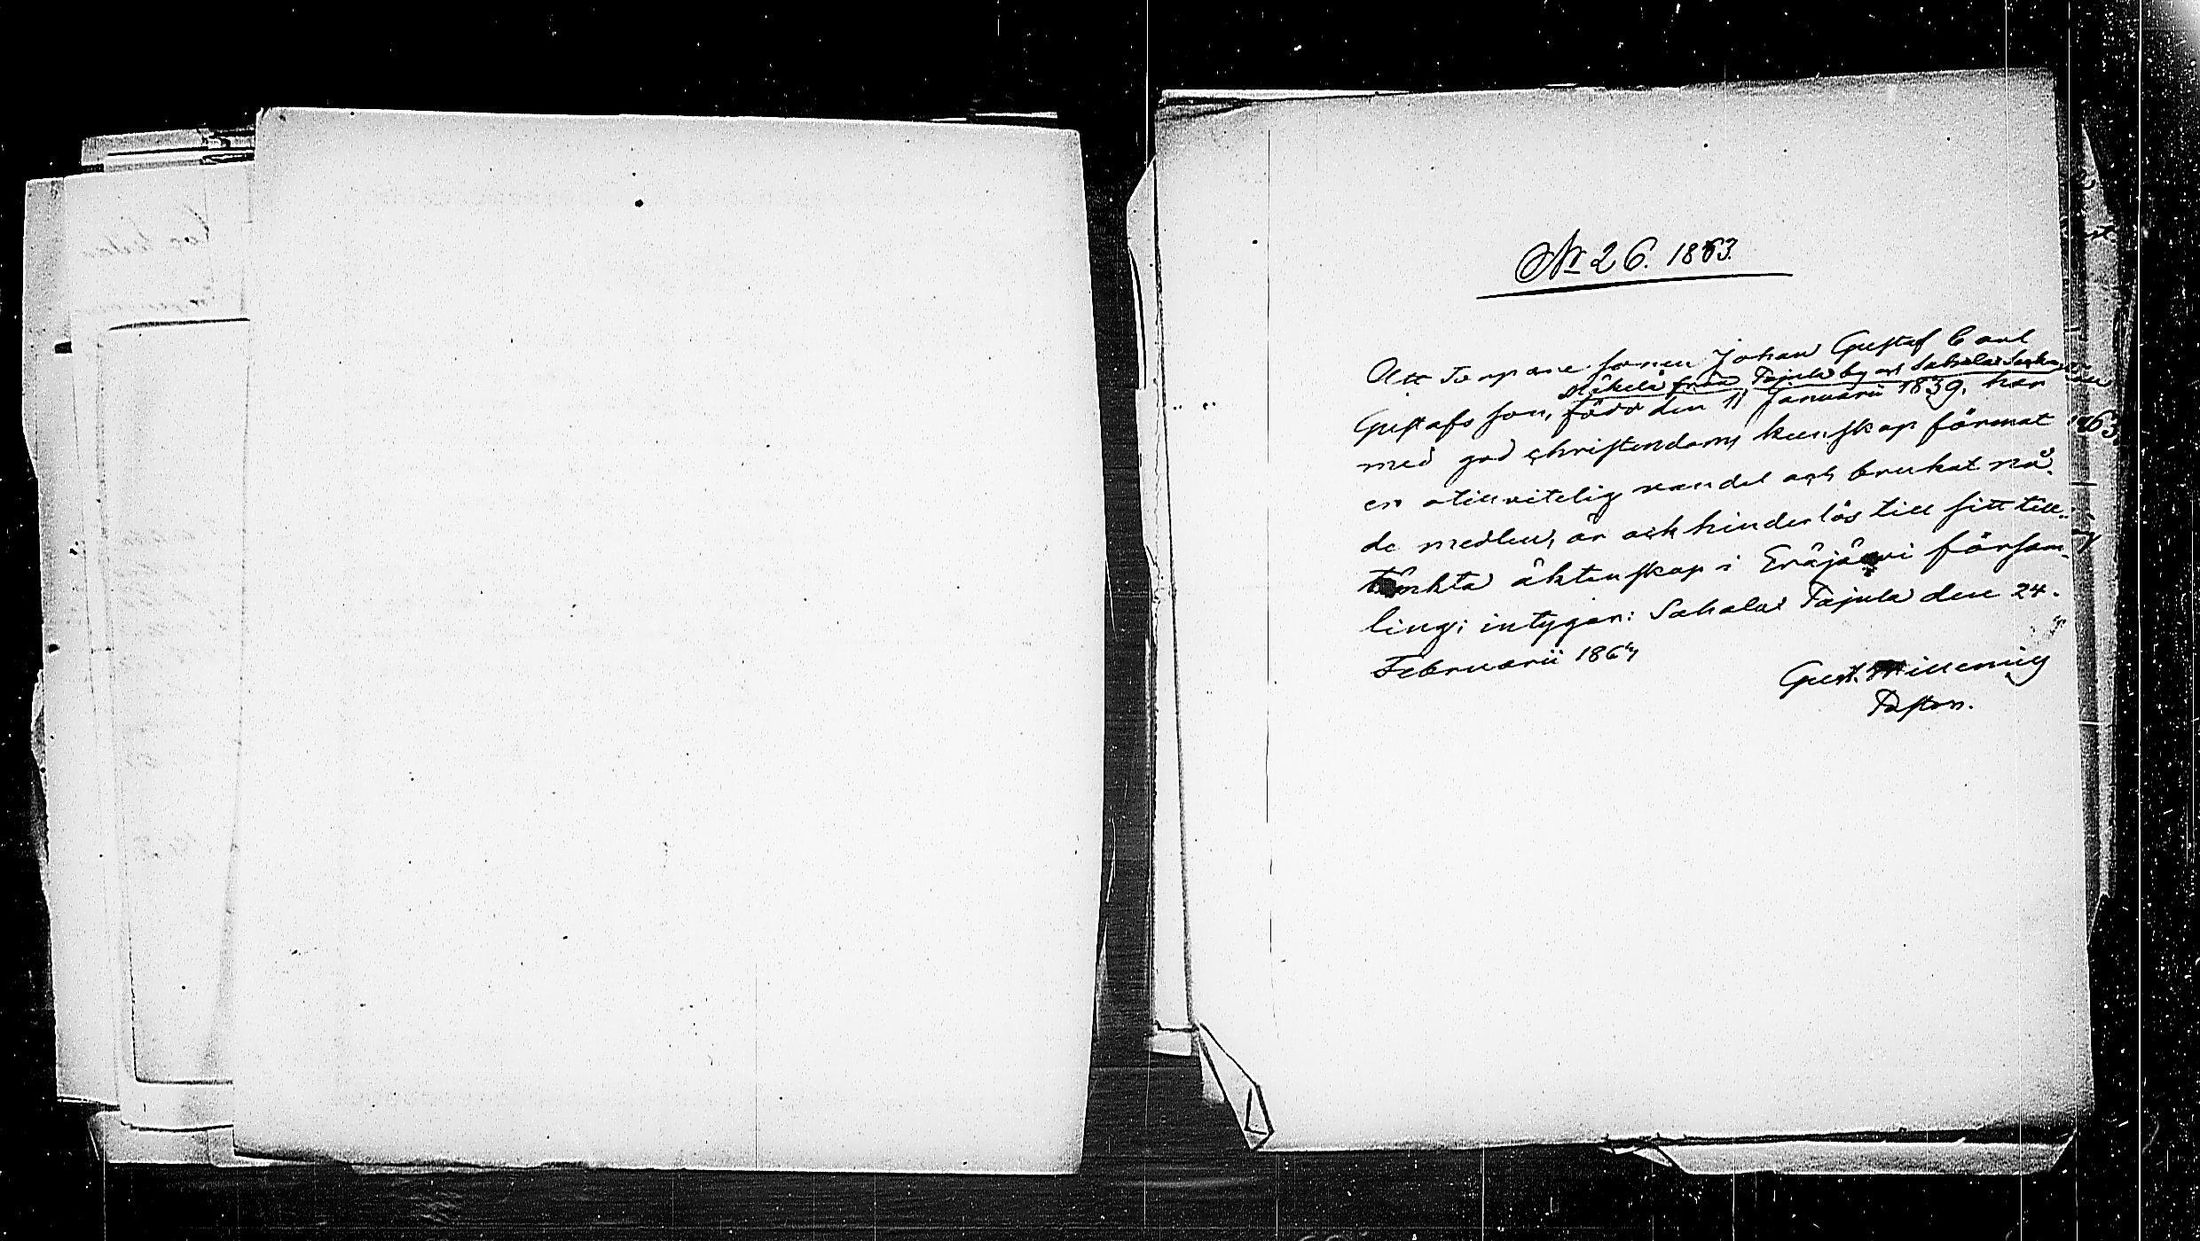 No 26. 1863.
Att Torparesonen Johan Gustaf Carl
Mäkelä från Pajula by och Sahalax Socken
Gustafsson, född den 11 Januarii 1839, har
med god christendoms kunskap förenat
en otillvitelig vandel och brukat nå-
de medlen, är ock hinderlös till sitt till-
tänkta äktenskap i Eräjärvi försam-
ling; intygar: Sahalax Pajula den 24.
Februarii 1864
Gust.
Pastor.
1863